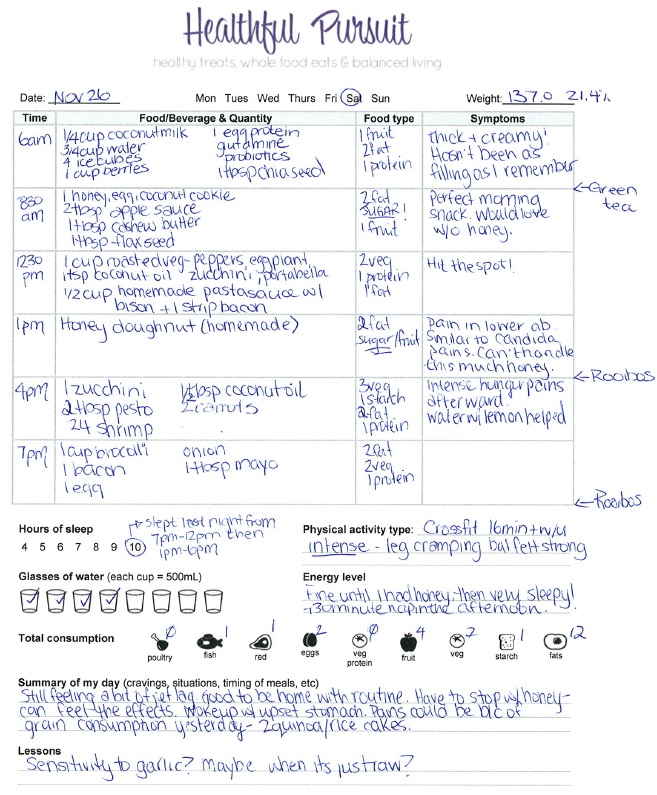 Healthful Pursuit
healthy treats, whole food eats & balanced living
Date: Nov 26 Mon Tues Wed Thurs Fri Sat Sun Weight: 137.0 21.4%
Time Food/Beverage & Quantity Food type Symptoms
6am
1/4 cup coconut milk
3/4 cup water
4 ice cubes
1 cup berries
1 egg protein
glutamine
probiotics
1 tbsp chia seed
1 fruit
2 fat
1 protein
thick + creamy!
Hasn't been as
filling as I remember
← Green
tea
830
am
1 honey, egg, coconut cookie
2 tbsp apple sauce
1 tbsp cashew butter
1 tbsp flax seed
2 fat
SUGAR!
1 fruit
Perfect morning
snack. Would love
w/o honey.
1230
pm
1 cup roasted veg- peppers, eggplant,
1 tsp coconut oil zucchini, portabella
1/2 cup homemade pasta sauce w/
bison + 1 strip bacon
2 veg
1 protein
1 fat
Hit the spot!
1pm
Honey doughnut (homemade)
2 fat
sugar/fruit
Pain in lower ab.
Similar to candida
pains. Can't handle
this much honey.
← Rooibos
4pm
1 zucchini
2 tbsp pesto
24 shrimp
1/2 tbsp coconut oil
2 carrots
3 veg
1 starch
2 fat
1 protein
Intense hunger pains
afterward.
water w/ lemon helped
7pm
1 cup brocolli
1 bacon
1 egg
onion
1 tbsp mayo
2 fat
2 veg
1 protein
← Rooibos
Hours of sleep
4 5 6 7 8 9 10
→ slept last night from
7pm-12pm then
1pm-6pm
Physical activity type: Crossfit 16min + w/u
intense - leg cramping but felt strong
Glasses of water (each cup = 500mL)
Energy level
Fine until I had honey, then very sleepy!
→30 minute nap in the afternoon.
Total consumption
0 1 1 2 0 4 7 1 12
poultry fish red eggs veg protein fruit veg starch fats
Summary of my day (cravings, situations, timing of meals, etc)
Still feeling a bit of jet lag. good to be home with routine. Have to stop w/ honey-
can feel the effects. Woke up w/ upset stomach. Pains could be b/c of
grain consumption yesterday - 2 quinoa/rice cakes.
Lessons
Sensitivity to garlic? Maybe when its just raw?